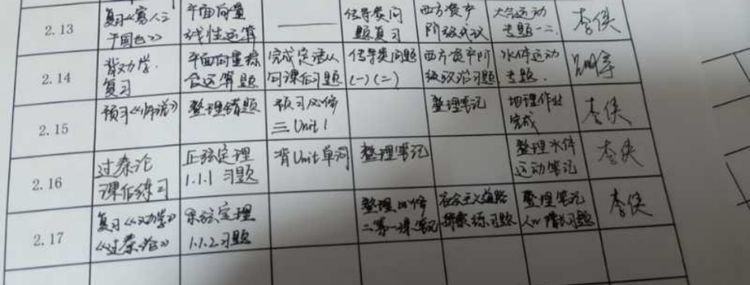 2.13
复习《寡人之
于国也》
平面向量
线性运算
传导类问
题复习
西方资产
阶级代议
大气运动
专题一二
李侠
2.14
劝学
复习
平面向量综
合运算题
完成定语从
句课后习题
传导类问题
(一)(二)
西方资产阶
级政治习题
水体运动
专题
2.15
预习《师说》
整理错题
预习必修
三 Unit 1
整理笔记
地理作业
完成
李侠
2.16
过秦论
课后练习
正弦定理
1.1.1 习题
背 Unit 单词
整理笔记
整理水体
运动笔记
李侠
2.17
复习《劝学》
《过秦论》
余弦定理
1.1.2 习题
整理必修
二第一课笔记
社会主义道路
探索练习题
整理笔记
人口增长习题
李侠